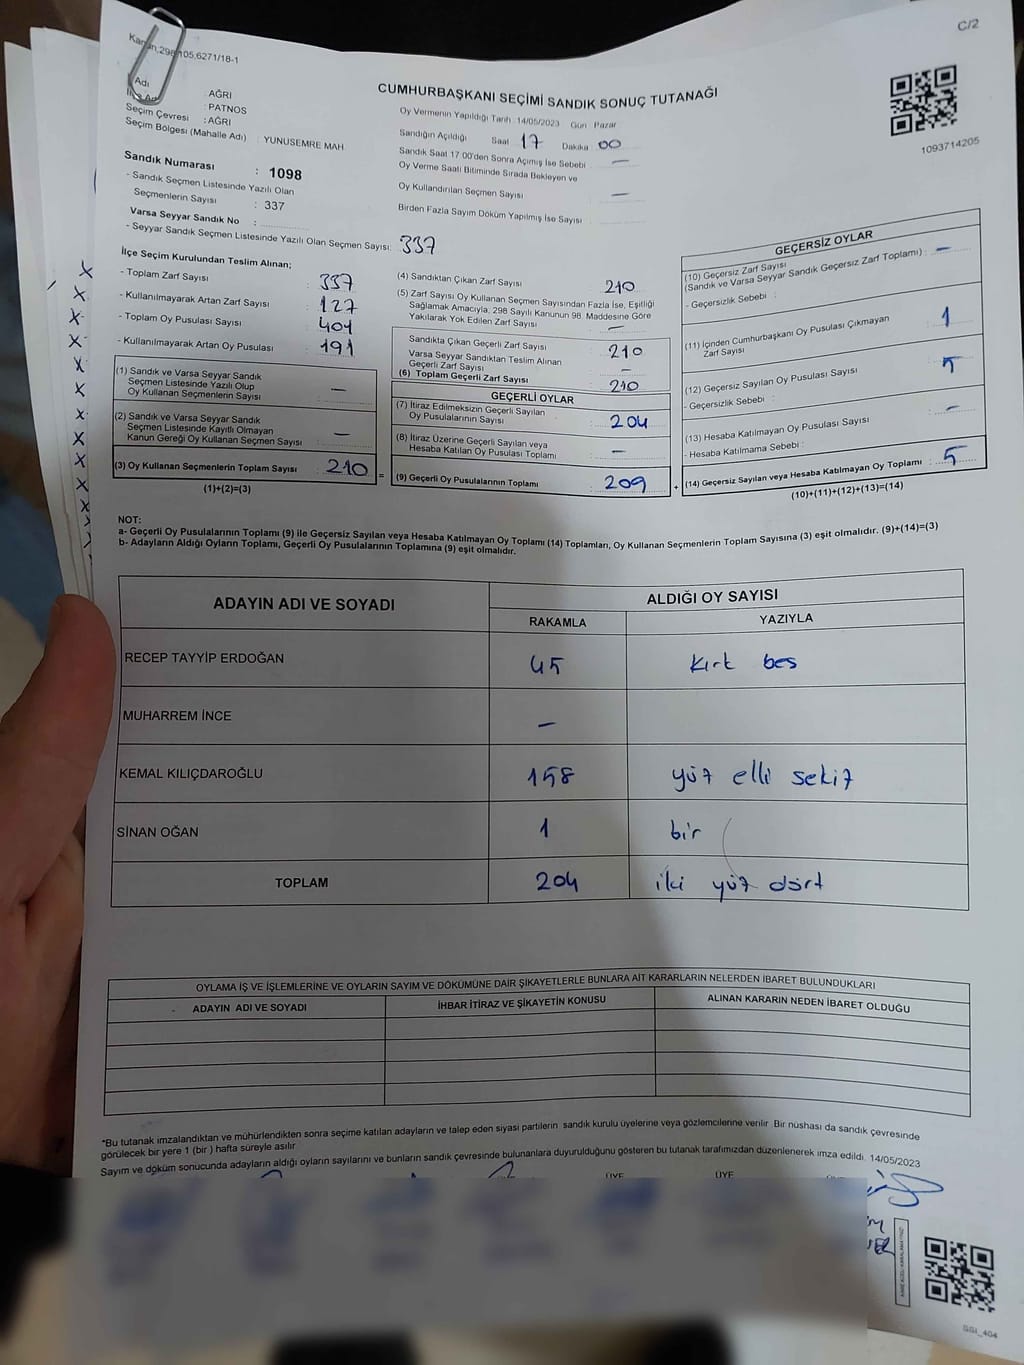 C/2
Kanun,298,105,6271/18-1
CUMHURBAŞKANI SEÇİMİ SANDIK SONUÇ TUTANAĞI
Adı : AĞRI
: PATNOS
Seçim Çevresi : AĞRI
Seçim Bölgesi (Mahalle Adı) : YUNUSEMRE MAH
Oy Vermenin Yapıldığı Tarih : 14/05/2023 Gün Pazar
Sandığın Açıldığı Saat 17 Dakika 00
Sandık Saat 17.00'den Sonra Açımış İse Sebebi —
Oy Verme Saati Bitiminde Sırada Bekleyen ve
Oy Kullandırılan Seçmen Sayısı —
Birden Fazla Sayım Döküm Yapılmış İse Sayısı
1093714205
Sandık Numarası : 1098
- Sandık Seçmen Listesinde Yazılı Olan
Seçmenlerin Sayısı : 337
Varsa Seyyar Sandık No :
- Seyyar Sandık Seçmen Listesinde Yazılı Olan Seçmen Sayısı: 337
İlçe Seçim Kurulundan Teslim Alınan;
- Toplam Zarf Sayısı : 337
- Kullanılmayarak Artan Zarf Sayısı : 127
- Toplam Oy Pusulası Sayısı : 401
- Kullanılmayarak Artan Oy Pusulası : 191
(1) Sandık ve Varsa Seyyar Sandık
Seçmen Listesinde Yazılı Olup
Oy Kullanan Seçmenlerin Sayısı : —
(2) Sandık ve Varsa Seyyar Sandık
Seçmen Listesinde Kayıtlı Olmayan
Kanun Gereği Oy Kullanan Seçmen Sayısı : —
(3) Oy Kullanan Seçmenlerin Toplam Sayısı : 210
(1)+(2)=(3)
=
(4) Sandıktan Çıkan Zarf Sayısı 210
(5) Zarf Sayısı Oy Kullanan Seçmen Sayısından Fazla İse, Eşitliği
Sağlamak Amacıyla, 298 Sayılı Kanunun 98. Maddesine Göre
Yakılarak Yok Edilen Zarf Sayısı —
Sandıkta Çıkan Geçerli Zarf Sayısı 210
Varsa Seyyar Sandıktan Teslim Alınan
Geçerli Zarf Sayısı —
(6) Toplam Geçerli Zarf Sayısı 210
GEÇERLİ OYLAR
(7) İtiraz Edilmeksizin Geçerli Sayılan
Oy Pusulalarının Sayısı : 204
(8) İtiraz Üzerine Geçerli Sayılan veya
Hesaba Katılan Oy Pusulası Toplamı : —
(9) Geçerli Oy Pusulalarının Toplamı : 209
+
GEÇERSİZ OYLAR
(10) Geçersiz Zarf Sayısı
(Sandık ve Varsa Seyyar Sandık Geçersiz Zarf Toplamı) : —
- Geçersizlik Sebebi :
(11) İçinden Cumhurbaşkanı Oy Pusulası Çıkmayan
Zarf Sayısı : 1
(12) Geçersiz Sayılan Oy Pusulası Sayısı : 5
- Geçersizlik Sebebi :
(13) Hesaba Katılmayan Oy Pusulası Sayısı : —
- Hesaba Katılmama Sebebi :
(14) Geçersiz Sayılan veya Hesaba Katılmayan Oy Toplamı : 5
(10)+(11)+(12)+(13)=(14)
NOT:
a- Geçerli Oy Pusulalarının Toplamı (9) ile Geçersiz Sayılan veya Hesaba Katılmayan Oy Toplamı (14) Toplamları, Oy Kullanan Seçmenlerin Toplam Sayısına (3) eşit olmalıdır. (9)+(14)=(3)
b- Adayların Aldığı Oyların Toplamı, Geçerli Oy Pusulalarının Toplamına (9) eşit olmalıdır.
ADAYIN ADI VE SOYADI ALDIĞI OY SAYISI
RAKAMLA YAZIYLA
RECEP TAYYİP ERDOĞAN 45 kırk bes
MUHARREM İNCE —
KEMAL KILIÇDAROĞLU 158 yüz elli sekiz
SİNAN OĞAN 1 bir
TOPLAM 204 iki yüz dört
OYLAMA İŞ VE İŞLEMLERİNE VE OYLARIN SAYIM VE DÖKÜMÜNE DAİR ŞİKAYETLERLE BUNLARA AİT KARARLARIN NELERDEN İBARET BULUNDUKLARI
ADAYIN ADI VE SOYADI İHBAR İTİRAZ VE ŞİKAYETİN KONUSU ALINAN KARARIN NEDEN İBARET OLDUĞU
*Bu tutanak imzalandıktan ve mühürlendikten sonra seçime katılan adayların ve talep eden siyasi partilerin sandık kurulu üyelerine veya gözlemcilerine verilir. Bir nüshası da sandık çevresinde
görülecek bir yere 1 (bir) hafta süreyle asılır.
Sayım ve döküm sonucunda adayların aldığı oyların sayılarını ve bunların sandık çevresinde bulunanlara duyurulduğunu gösteren bu tutanak tarafımızdan düzenlenerek imza edildi. 14/05/2023
ÜYE ÜYE